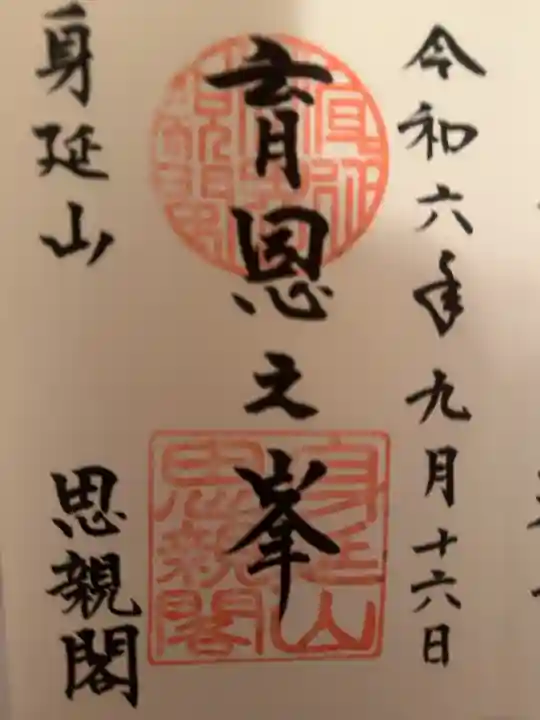 令和六年九月十六日
育恩之峯
身延山
思親閣
身延山
思親閣